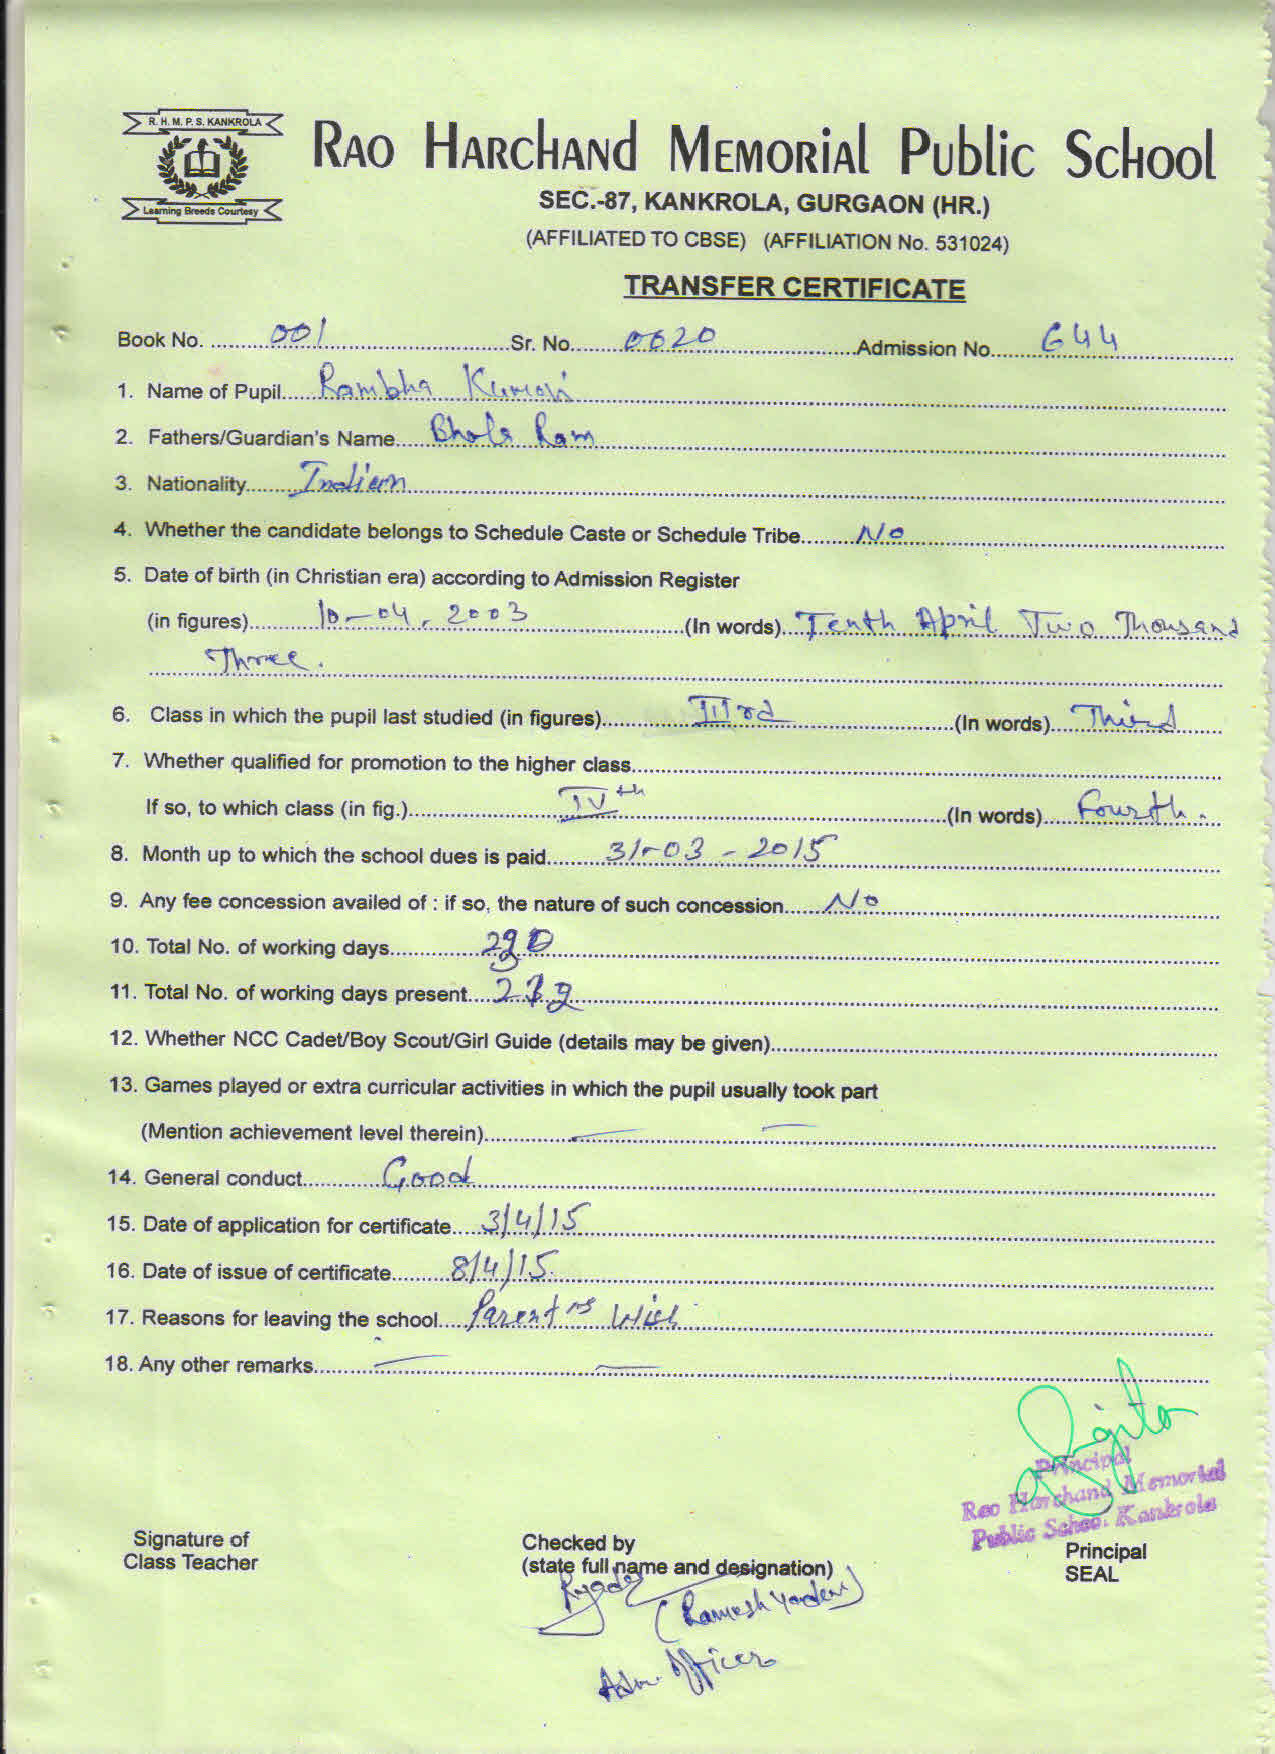 R. H. M. P. S. KANKROLA
Learning Breeds Courtesy
RAO HARCHAND MEMORIAL PUBLIC SCHOOL
SEC.-87, KANKROLA, GURGAON (HR.)
(AFFILIATED TO CBSE) (AFFILIATION No. 531024)
TRANSFER CERTIFICATE
Book No. 001 Sr. No. 0020 Admission No. 644
1. Name of Pupil Rambha Kumari
2. Fathers/Guardian's Name Bhola Ram
3. Nationality Indian
4. Whether the candidate belongs to Schedule Caste or Schedule Tribe No
5. Date of birth (in Christian era) according to Admission Register
(in figures) 10-04-2003 (In words) Tenth April Two Thousand
Three.
6. Class in which the pupil last studied (in figures) IIIrd (In words) Third
7. Whether qualified for promotion to the higher class
If so, to which class (in fig.) IVth (In words) Fourth.
8. Month up to which the school dues is paid 31-03-2015
9. Any fee concession availed of : if so, the nature of such concession No
10. Total No. of working days
11. Total No. of working days present
12. Whether NCC Cadet/Boy Scout/Girl Guide (details may be given)
13. Games played or extra curricular activities in which the pupil usually took part
(Mention achievement level therein) — —
14. General conduct Good
15. Date of application for certificate 3/4/15
16. Date of issue of certificate 8/4/15.
17. Reasons for leaving the school Parent's Wish
18. Any other remarks — —
Principal
Rao Harchand Memorial
Public School Kankrola
Signature of
Class Teacher
Checked by
(state full name and designation)
Principal
SEAL
(Ramesh Yadav)
Adm. Officer